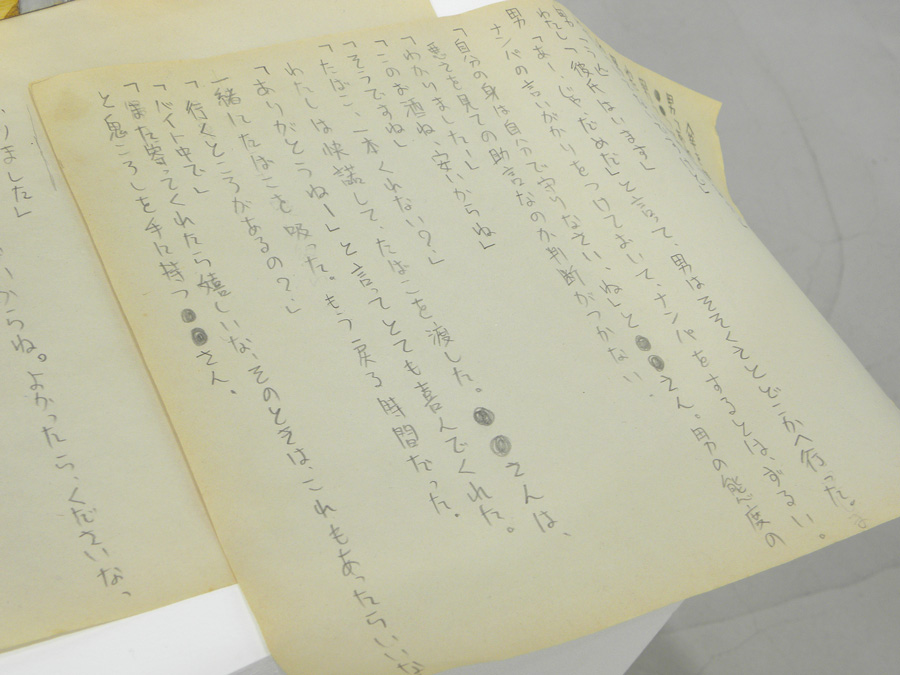 わたし「彼氏はいます」と言って、男はそそくさとどこかへ行った。
「あー、じゃだめだ」
男「ナンパの言いがかりをつけておいて、ナンパをするとは、ずるい。
「自分の身は自分で守りなさい、ね」と●●さん。男の態度の
悪さを見ての助言なのか判断がつかない。
「わかりました〜」
「このお酒ね、安いからね」
「そうですね」
「たばこ、一本くれない?」
わたしは快諾して、たばこを渡した。●●さんは、
「ありがとうねー」と言ってとても喜んでくれた。
一緒にたばこを吸った。もう戻る時間だった。
「行くところがあるの?」
「バイト中で」
「また寄ってくれたら嬉しいな、そのときは、これもあったらいいな」
と鬼ころしを手に持つ●●さん。
りました」
からね。よかったら、くださいな。